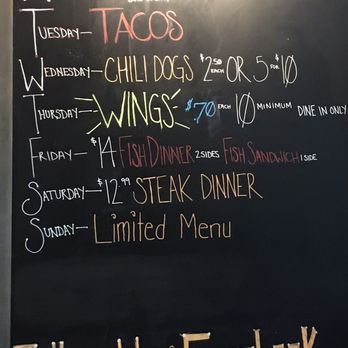 TUESDAY— TACOS
WEDNESDAY— CHILI DOGS $2.50 EACH OR 5 FOR $10
THURSDAY— WINGS $.70 EACH 10 MINIMUM DINE IN ONLY
FRIDAY— $14 FISH DINNER 2 SIDES FISH SANDWICH 1 SIDE
SATURDAY— $12.99 STEAK DINNER
SUNDAY— Limited Menu